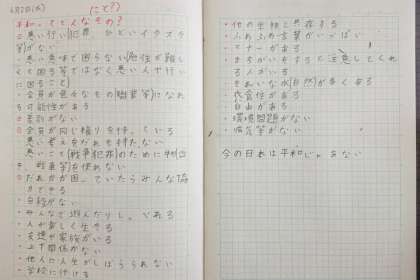 6月2日(火)
にと?)
平和ってどんなもの?
悪い行い(犯罪 ひどいイタズラ
等)がない
悪い意味で困らない
く困る等ではなく悪い人や行い
に困ること)
全員が色々なもの(職業等)になれ
る可能性がある
差別がない
全員が同じ権利を持っている
悪い考えをだれも持たない
悪いこと(戦争犯罪)のために
戦車等)を使わない
だれかが困っていたらみんな協
力できる
自殺がない
みんなで遊んだりしている
人が楽しく生きる
友達や家族がいる
上下関係がない
他人に人生がしばられない
学校に行ける
他の生物と共存する
ふわふわ言葉がいっぱい
マナーがある
まちがいをすると注意してくれ
る人がいる
きれいな水(自然)が多くある
代表性がある
自由がある
環境問題がない
病気等がない
今の日本は平和じゃあない